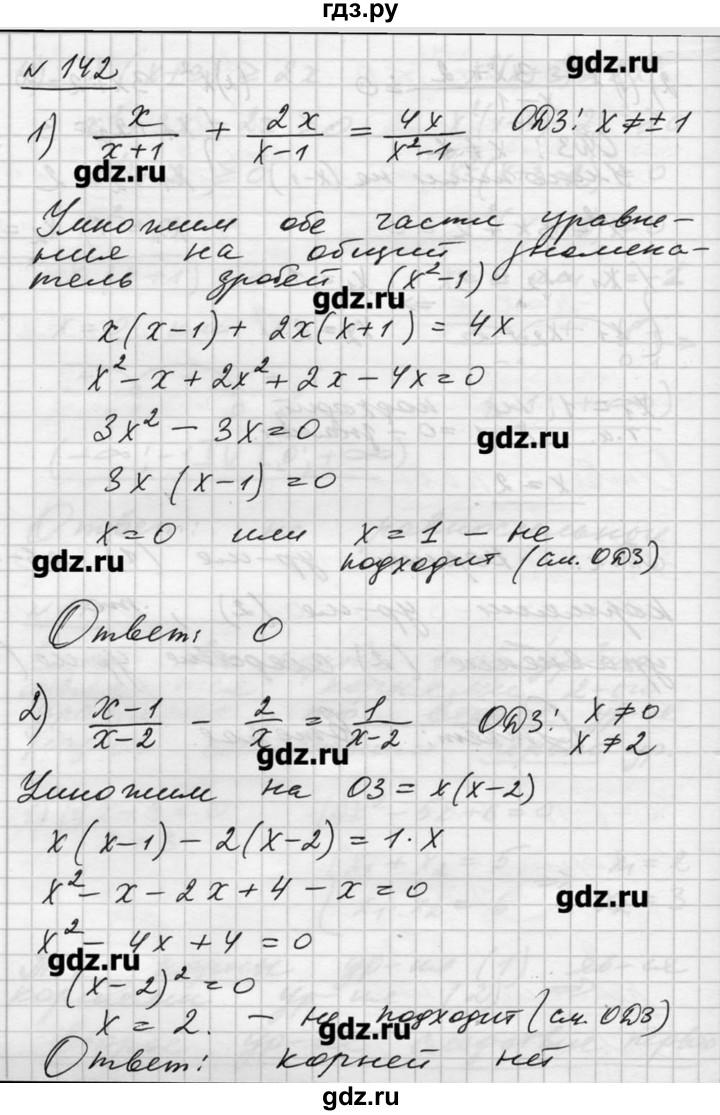 гдз.ру
№ 142
gdz.ru
1) x/(x+1) + 2x/(x-1) = 4x/(x²-1) ОДЗ: x ≠ ± 1
gdz.ru
Умножим обе части уравне-
ния на общий знамена-
тель дробей (x²-1)
gdz.ru
x(x-1) + 2x(x+1) = 4x
x² - x + 2x² + 2x - 4x = 0
3x² - 3x = 0
gdz.ru
3x (x-1) = 0
x = 0 или x = 1 - не
подходит (см. ОДЗ)
gdz.ru
Ответ: 0
2) (x-1)/(x-2) - 2/x = 1/(x-2) ОДЗ: x ≠ 0
x ≠ 2
gdz.ru
Умножим на ОЗ = x(x-2)
x(x-1) - 2(x-2) = 1·x
x² - x - 2x + 4 - x = 0
gdz.ru
x² - 4x + 4 = 0
gdz.ru
(x-2)² = 0
x = 2. - не подходит (см. ОДЗ)
gdz.ru
Ответ: корней нет
гдз.ру